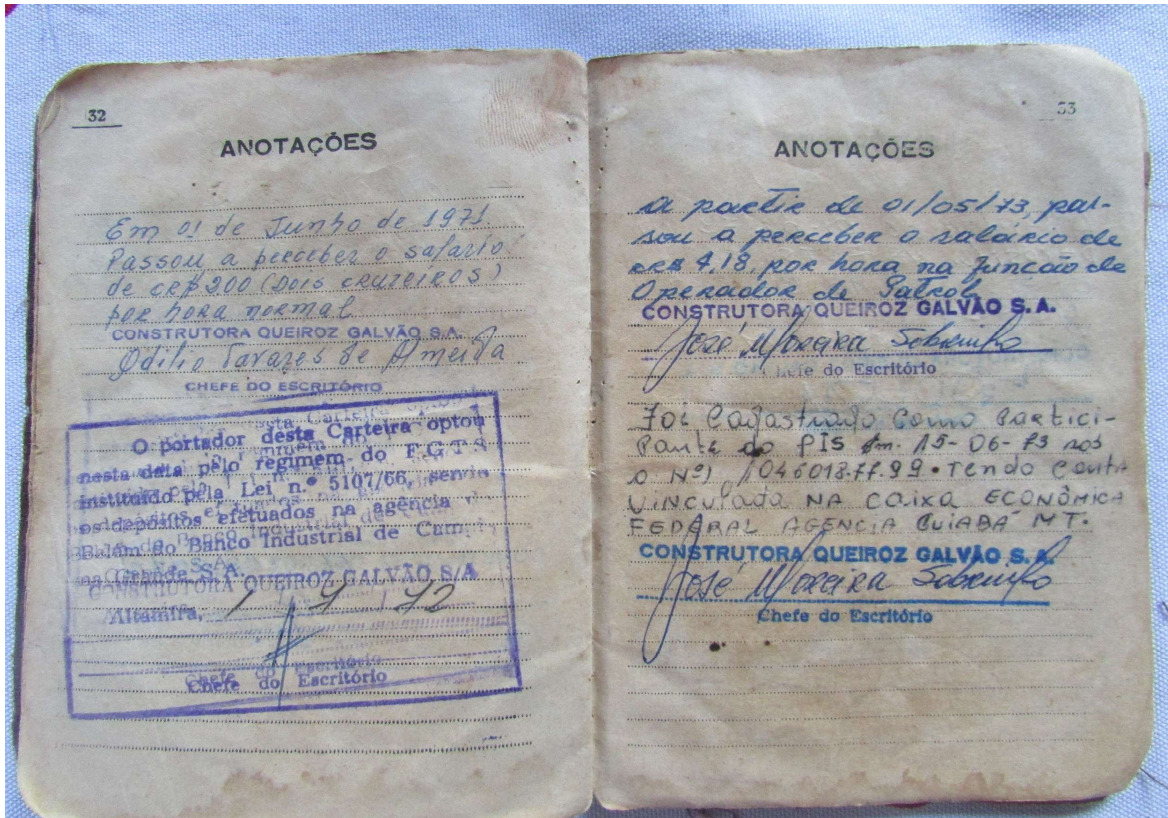 32
ANOTAÇÕES
Em 01 de Junho de 1971
Passou a perceber o salario
de CR$ 200 (Dois cruzeiros)
por hora normal
CONSTRUTORA QUEIROZ GALVÃO S.A.
Odilio Tavares de Almeida
CHEFE DO ESCRITÓRIO
O portador desta Carteira optou
nesta data pelo regimem do F.G.T.S
instituído pela Lei n.º 5107/66,
os depósitos efetuados na agência
Belém do Banco Industrial de Camp
na Grande S.A.
CONSTRUTORA QUEIROZ GALVÃO S/A
Altamira, 1 / 9 / 72
Chefe do Escritório
33
ANOTAÇÕES
A partir de 01/05/73, pas-
sou a perceber o salário de
CR$ 4,18, por hora na função de
Operador de Patrol
CONSTRUTORA QUEIROZ GALVÃO S.A.
José Moreira Sobrinho
Chefe do Escritório
Foi Cadastrado Como Partici-
Pante do PIS em. 15-06-73 sob
o Nº) 1046018.77.99. Tendo Conta
VINCULADA NA CAIXA ECONÔMICA
FEDERAL AGENCIA CUIABÁ MT.
CONSTRUTORA QUEIROZ GALVÃO S.A.
José Moreira Sobrinho
Chefe do Escritório